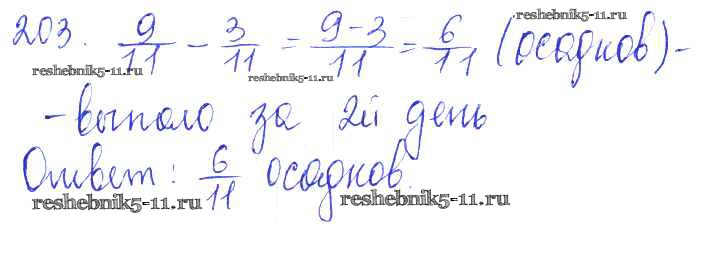 203. 9/11 - 3/11 = 9-3/11 = 6/11 (осадков) -
reshebnik5-11.ru reshebnik5-11.ru reshebnik5-11.ru
- выпало за 2й день
Ответ: 6/11 осадков.
reshebnik5-11.ru reshebnik5-11.ru